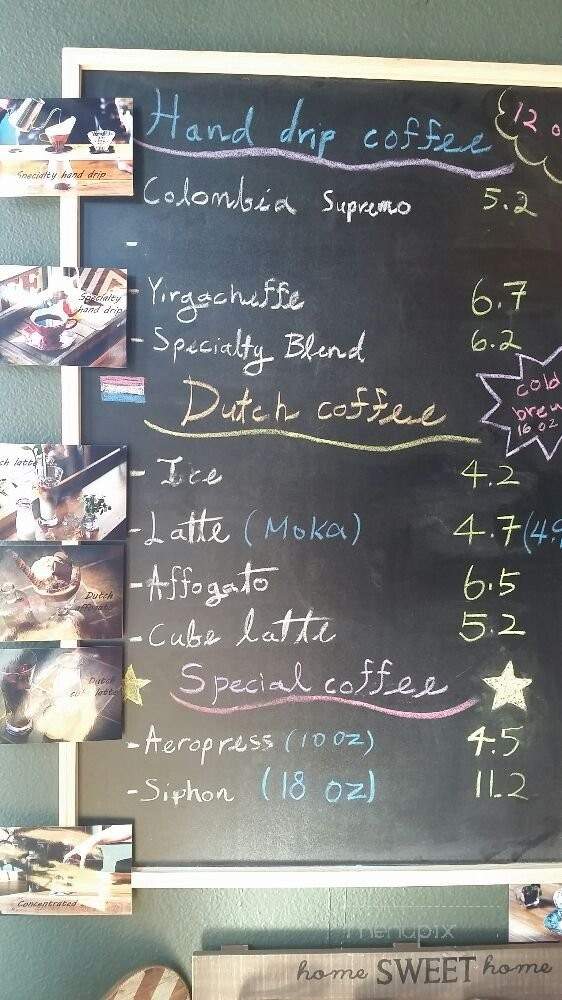 Hand drip coffee
12 o
Specialty hand drip
Colombia Supremo 5.2
-
Specialty
hand drip
- Yirgacheffe 6.7
- Specialty Blend 6.2
cold
brew
16 oz
Dutch coffee
ch latte
- Ice 4.2
- Latte (Moka) 4.7 (4.9
- Affogato 6.5
Dutch
affogato
- Cube latte 5.2
Dutch
cube latte
Special coffee
- Aeropress (10 oz) 4.5
- Siphon (18 oz) 11.2
Concentrated
menupix
home SWEET home